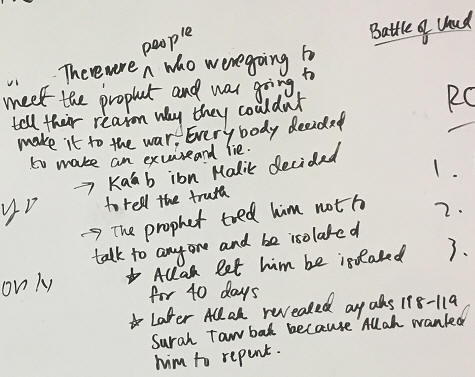 Battle of Uhud
people
There were ^ who were going to
meet the prophet and was going to
tell their reason why they couldn't
make it to the war. Everybody decided
to make an excuse and lie.
→ Kaáb ibn Malik decided
to tell the truth
→ The prophet told him not to
talk to anyone and be isolated
★ Allah let him be isolated
for 40 days
★ Later Allah revealed ayahs 118-119
Surah Tawbah because Allah wanted
him to repent.
only
RO
1.
2.
3.